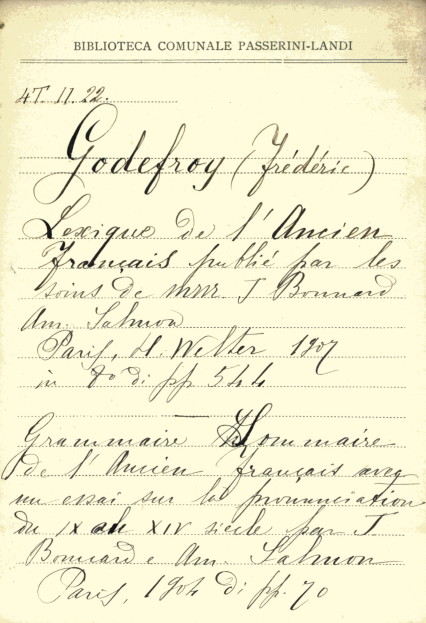 BIBLIOTECA COMUNALE PASSERINI-LANDI
4T. II. 22.
Godefroy (Frédéric)
Lexique de l'Ancien
Français publié par les
soins de mm J Bonnard
Am. Salmon
Paris, H. Welter 1907
in 8º di pp 544
Grammaire Sommaire
de l'Ancien français avec
un essai sur la prononciation
du IX au XIV siècle par J.
Bonnard e Am. Salmon
Paris, 1904 di pp. 70